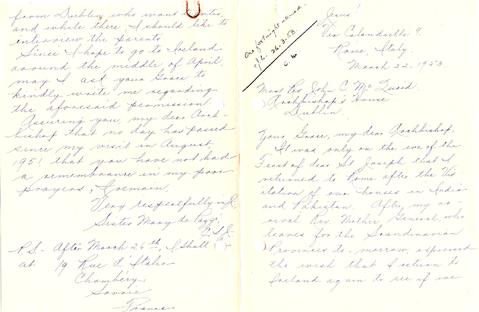 Jesus!
Via Calandrelli 9
Rome, Italy.
March 22, 1953
Most Rev John C. McQuaid
Archbishop's House
Dublin
Your Grace, my dear Archbishop,
It was only on the eve of the
Feast of dear St Joseph that I
returned to Rome after the Vis-
itation of our houses in India
and Pakistan. After my ar-
rival Rev Mother General, who
leaves for the Scandinavian
Provinces to-morrow, expressed
the wish that I return to
Ireland again to see if we
from Dublin who want to enter,
and while there I should like to
interview the parents.
Since I hope to go to Ireland
around the middle of April,
may I ask your Grace to
kindly write me regarding
the aforesaid permission.
Assuring you, my dear Arch-
bishop that no day has passed
since my visit in August,
1951 that you have not had
a remembrance in my poor
prayers, I remain
Very respectfully in J.
Sister Mary de
P.S. After March 26th, I shall be
at 19 Rue d'Italie
Chambery,
Savoie
France